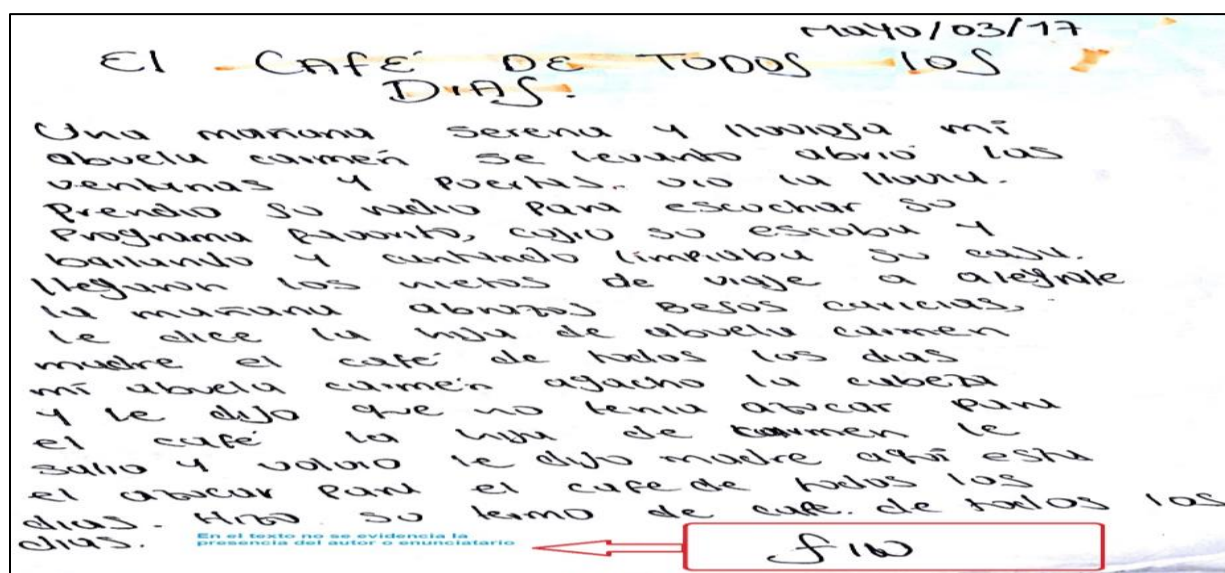 Mayo/03/17
El CAFÉ DE TODOS los
DIAS.
Una mañana serena y lluviosa mi
abuela carmen se levanto abrio las
ventanas y puertas. vio la lluvia.
Prendio su radio para escuchar su
Programa favorito, cojio su escoba y
bailando y cantando limpiaba su casa.
llegaron los nietos de viaje a alegrale
la mañana abrazos Besos caricias,
le dice la hija de abuela carmen
madre el café de todos los dias
mi abuela carmen agacho la cabeza
y le dijo que no tenia azucar para
el café la hija de carmen le
salio y volvio le dijo madre aquí esta
el azucar para el cafe de todos los
dias. Hizo su termo de cafe. de todos los
dias.
En el texto no se evidencia la
presencia del autor o enunciatario
fin